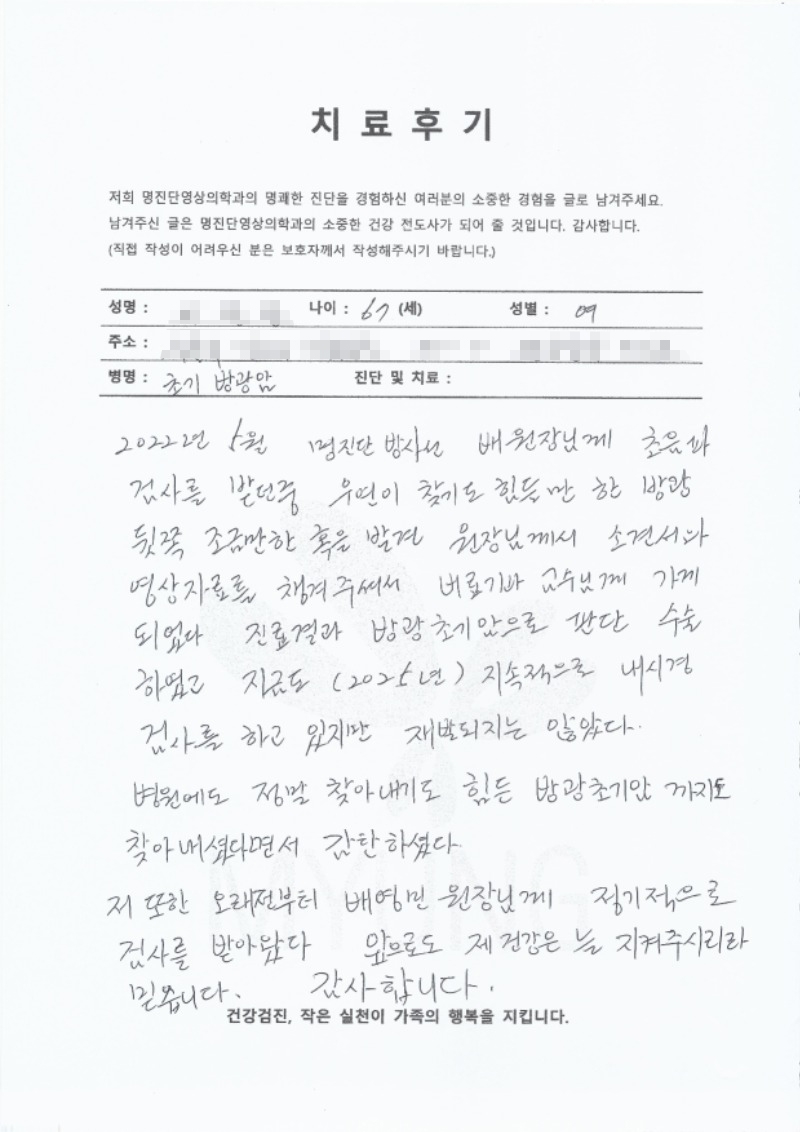 치료후기
저희 명진단영상의학과의 명쾌한 진단을 경험하신 여러분의 소중한 경험을 글로 남겨주세요.
남겨주신 글은 명진단영상의학과의 소중한 건강 전도사가 되어 줄 것입니다. 감사합니다.
(직접 작성이 어려우신 분은 보호자께서 작성해주시기 바랍니다.)
성명 : 나이 : 67 (세) 성별 : 여
주소 :
병명 : 초기 방광암 진단 및 치료 :
2022년 5월 명진단 방사선 배원장님께 초음파
검사를 받던중 우연이 찾기도 힘들만 한 방광
뒷쪽 조금만한 혹을 발견 원장님께서 소견서와
영상자료를 챙겨주셔서 교수님께 가게
되었다 진료결과 방광초기암으로 판단 수술
하였고 지금도 (2025년) 지속적으로 내시경
검사를 하고 있지만 재발되지는 않았다.
병원에도 정말 찾아내기도 힘든 방광초기암 까지도
찾아내셨다면서 감탄하셨다.
저 또한 오래전부터 배영민 원장님께 정기적으로
검사를 받아왔다 앞으로도 제 건강은 늘 지켜주시리라
믿습니다. 감사합니다.
건강검진, 작은 실천이 가족의 행복을 지킵니다.
MYUNG